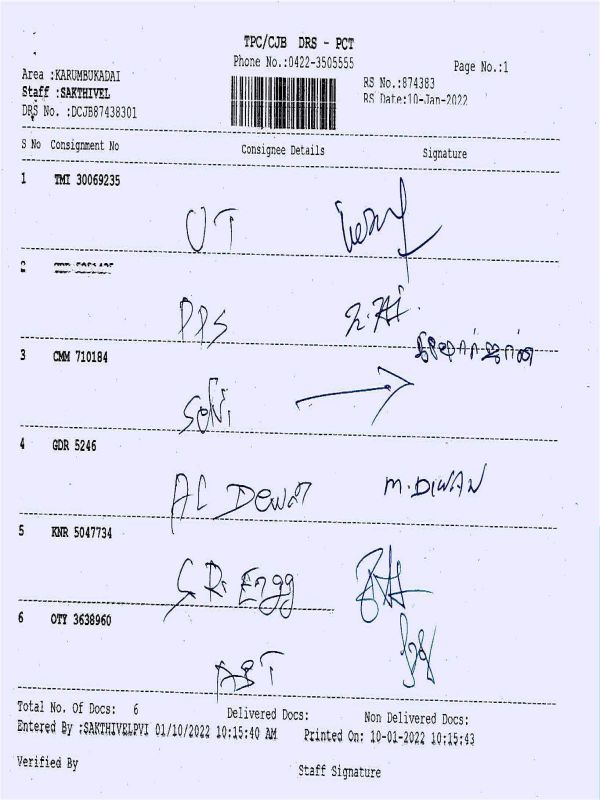 TPC/CJB DRS - PCT
Phone No.:0422-3505555
Page No.:1
Area :KARUMBUKADAI
RS No.:874383
Staff :SAKTHIVEL
RS Date:10-Jan-2022
DRS No. :DCJB87438301
S No Consignment No Consignee Details Signature
1 TMI 30069235
UT
2
PPS
3 CMM 710184
Soni
4 GDR 5246
AL Dewan M.DIWAN
5 KNR 5047734
S.R. Engg
6 OTY 3638960
ABT
Total No. Of Docs: 6 Delivered Docs: Non Delivered Docs:
Entered By :SAKTHIVELPVI 01/10/2022 10:15:40 AM Printed On: 10-01-2022 10:15:43
Verified By Staff Signature